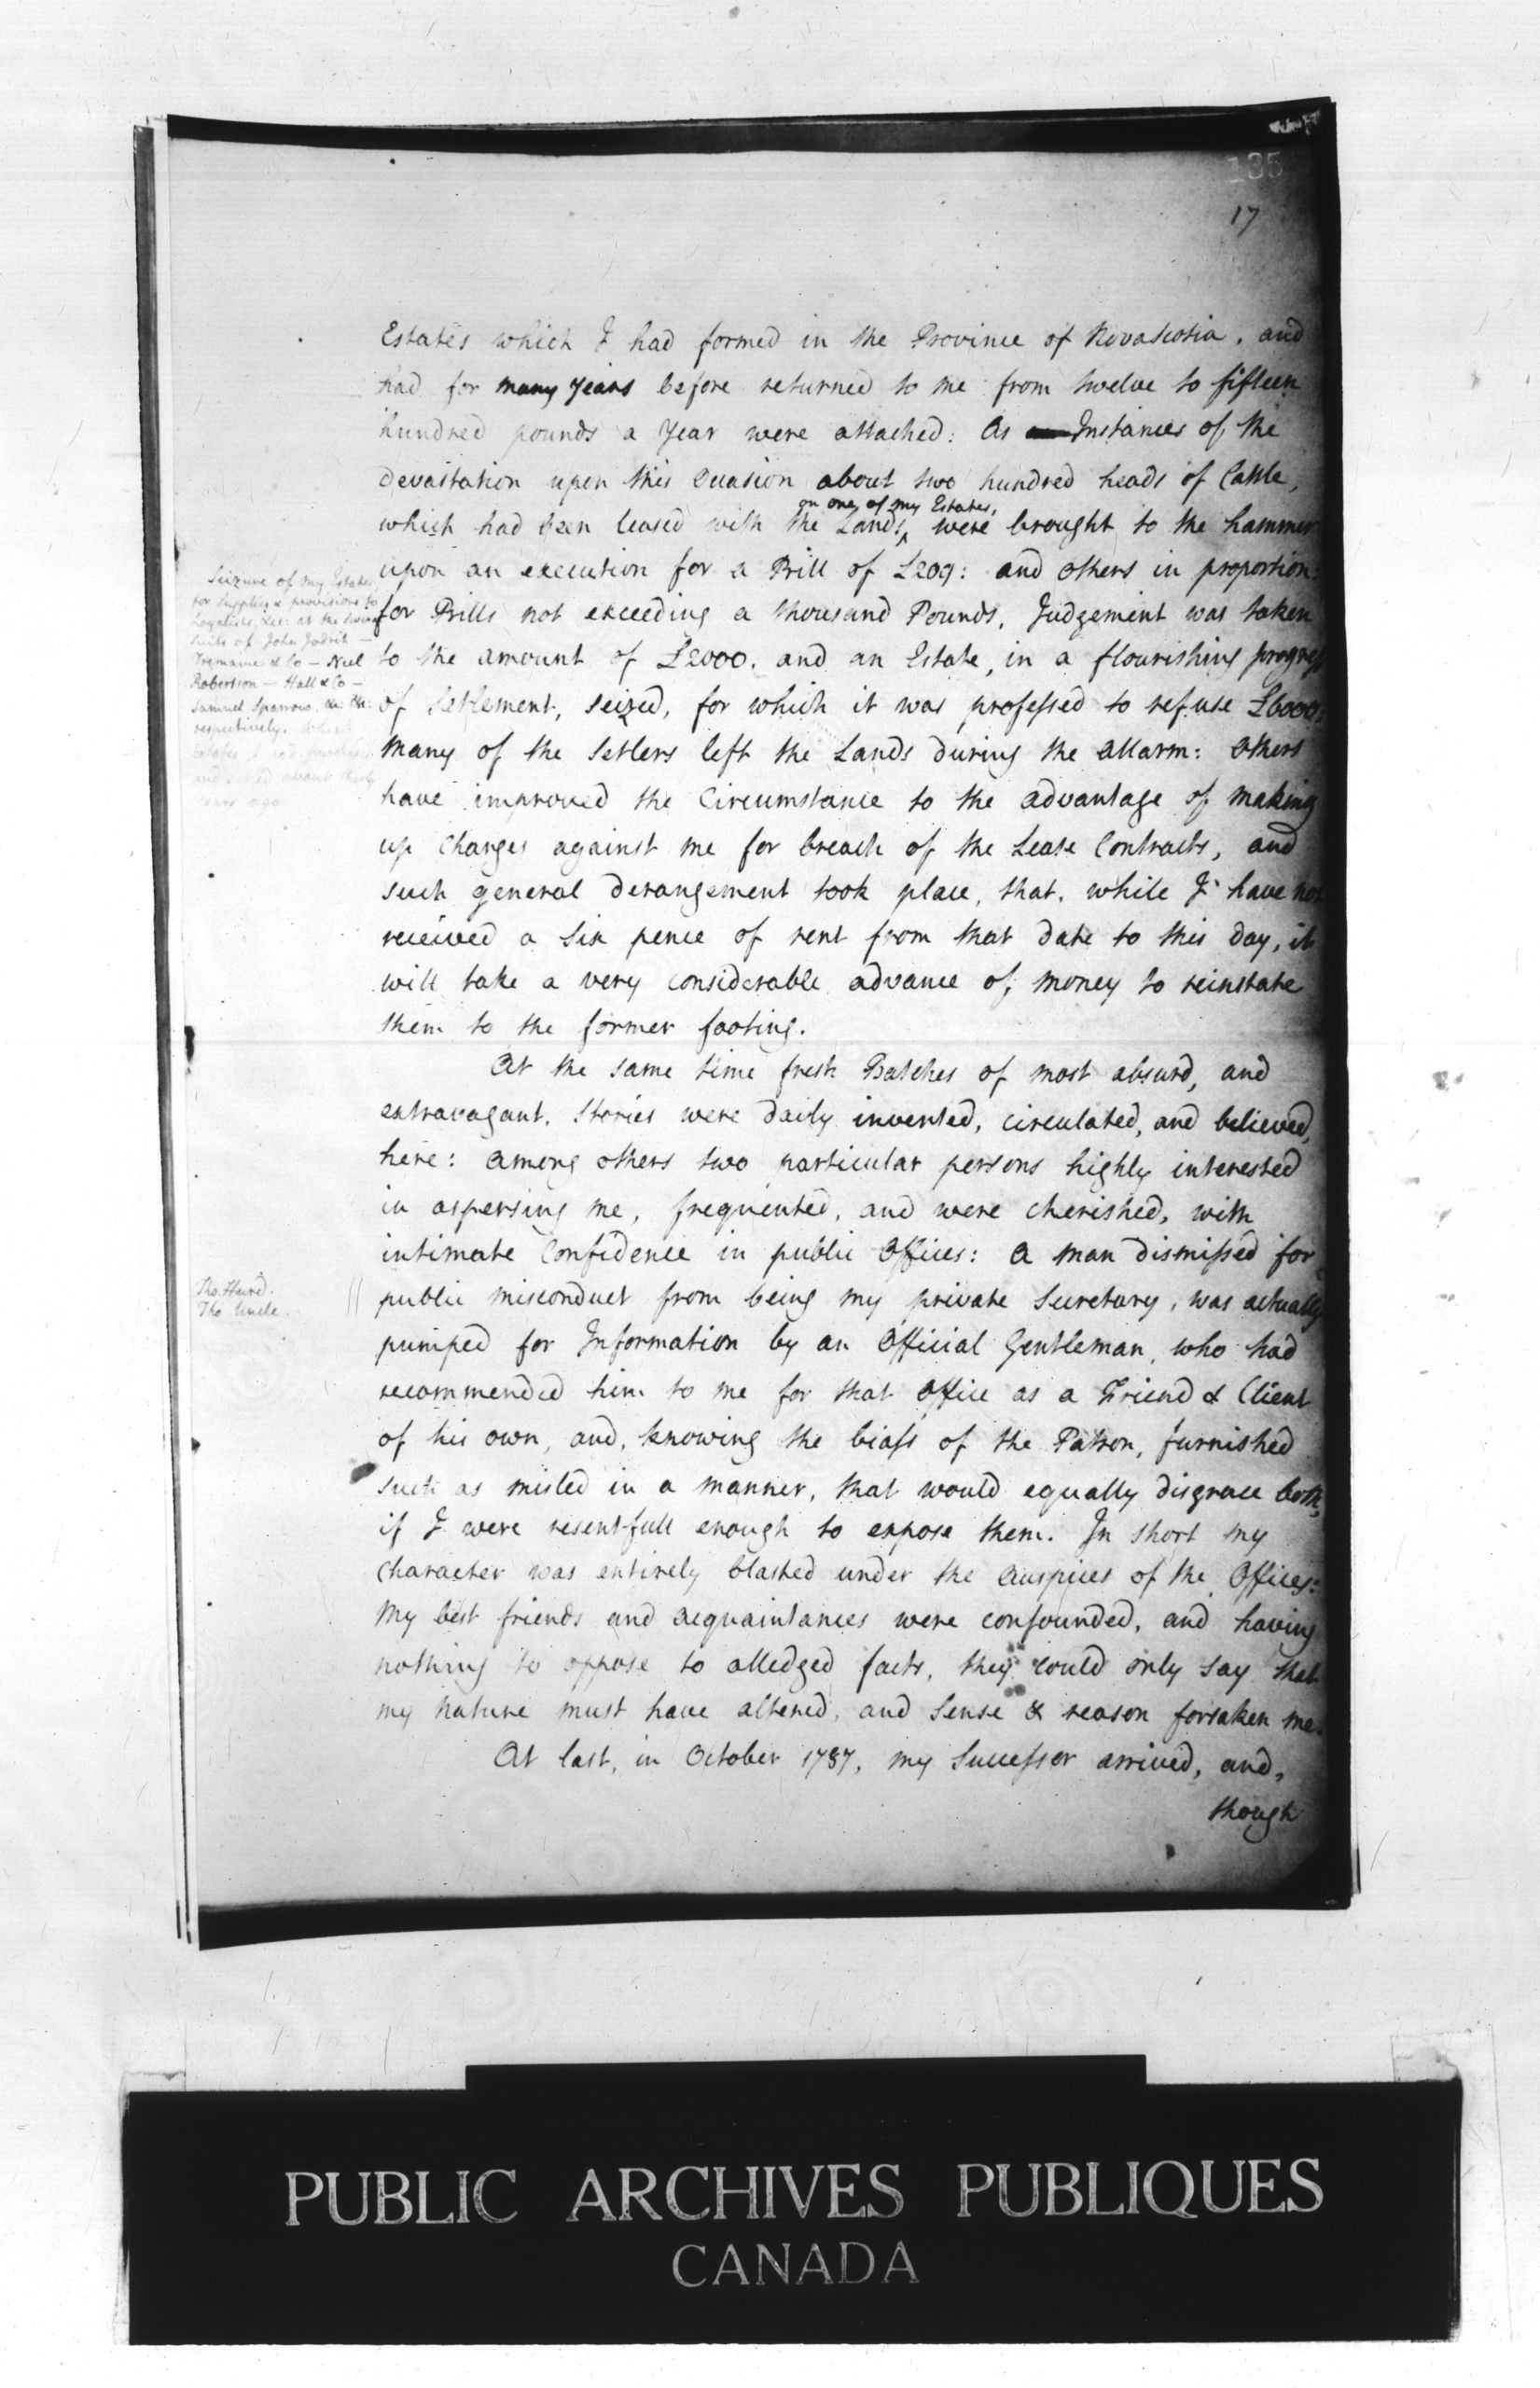 135
17
Estates which I had formed in the Province of Novascotia, and
had for many years before returned to me from twelve to fifteen
hundred pounds a Year were attached: As Instances of the
devastation upon this occasion about two hundred heads of Cattle,
on one of my Estates,
which had been leased with the Lands, were brought to the hammer
upon an execution for a Bill of £209: and others in proportion:
for Bills not exceeding a thousand Pounds, Judgement was taken
to the amount of £2000. and an Estate, in a flourishing progress
of Setlement, seized, for which it was professed to refuse £6000:
Many of the Setlers left the Lands during the allarm: Others
have improved the Circumstance to the advantage of making
up Charges against me for breach of the Lease Contracts, and
such general derangement took place, that, while I have not
received a Six pence of rent from that date to this day, it
will take a very considerable advance of money to reinstate
them to the former footing.
Seizure of my Estates
for Supplies & provisions to
Loyalists, &c: at the several
Suits of John
Tremaine & Co — Niel
Robertson — Hall & Co —
Samuel Sparrow, &c
respectively.
Estates I had
and about
years ago
At the same time fresh Batches of most absurd, and
extravagant, Stories were daily invented, circulated, and believed,
here: among others two particular persons highly interested
in aspersing me, frequented, and were cherished, with
intimate Confidence in public Offices: a man dismissed for
public misconduct from being my private Secretary, was actually
pumped for Information by an Official Gentleman, who had
recommended him to me for that Office as a Friend & Client
of his own, and, knowing the biass of the Patron, furnished
such as misled in a manner, that would equally disgrace both,
if I were resent-full enough to expose them. In short my
Character was entirely blasted under the Auspices of the Offices:
My best friends and acquaintances were confounded, and having
nothing to oppose to alledged facts, they could only say that
my nature must have altered, and Sense & reason forsaken me.
Tho. Hurd.
Tho Uncle.
At last, in October 1787, my Successor arrived, and,
though
PUBLIC ARCHIVES PUBLIQUES
CANADA